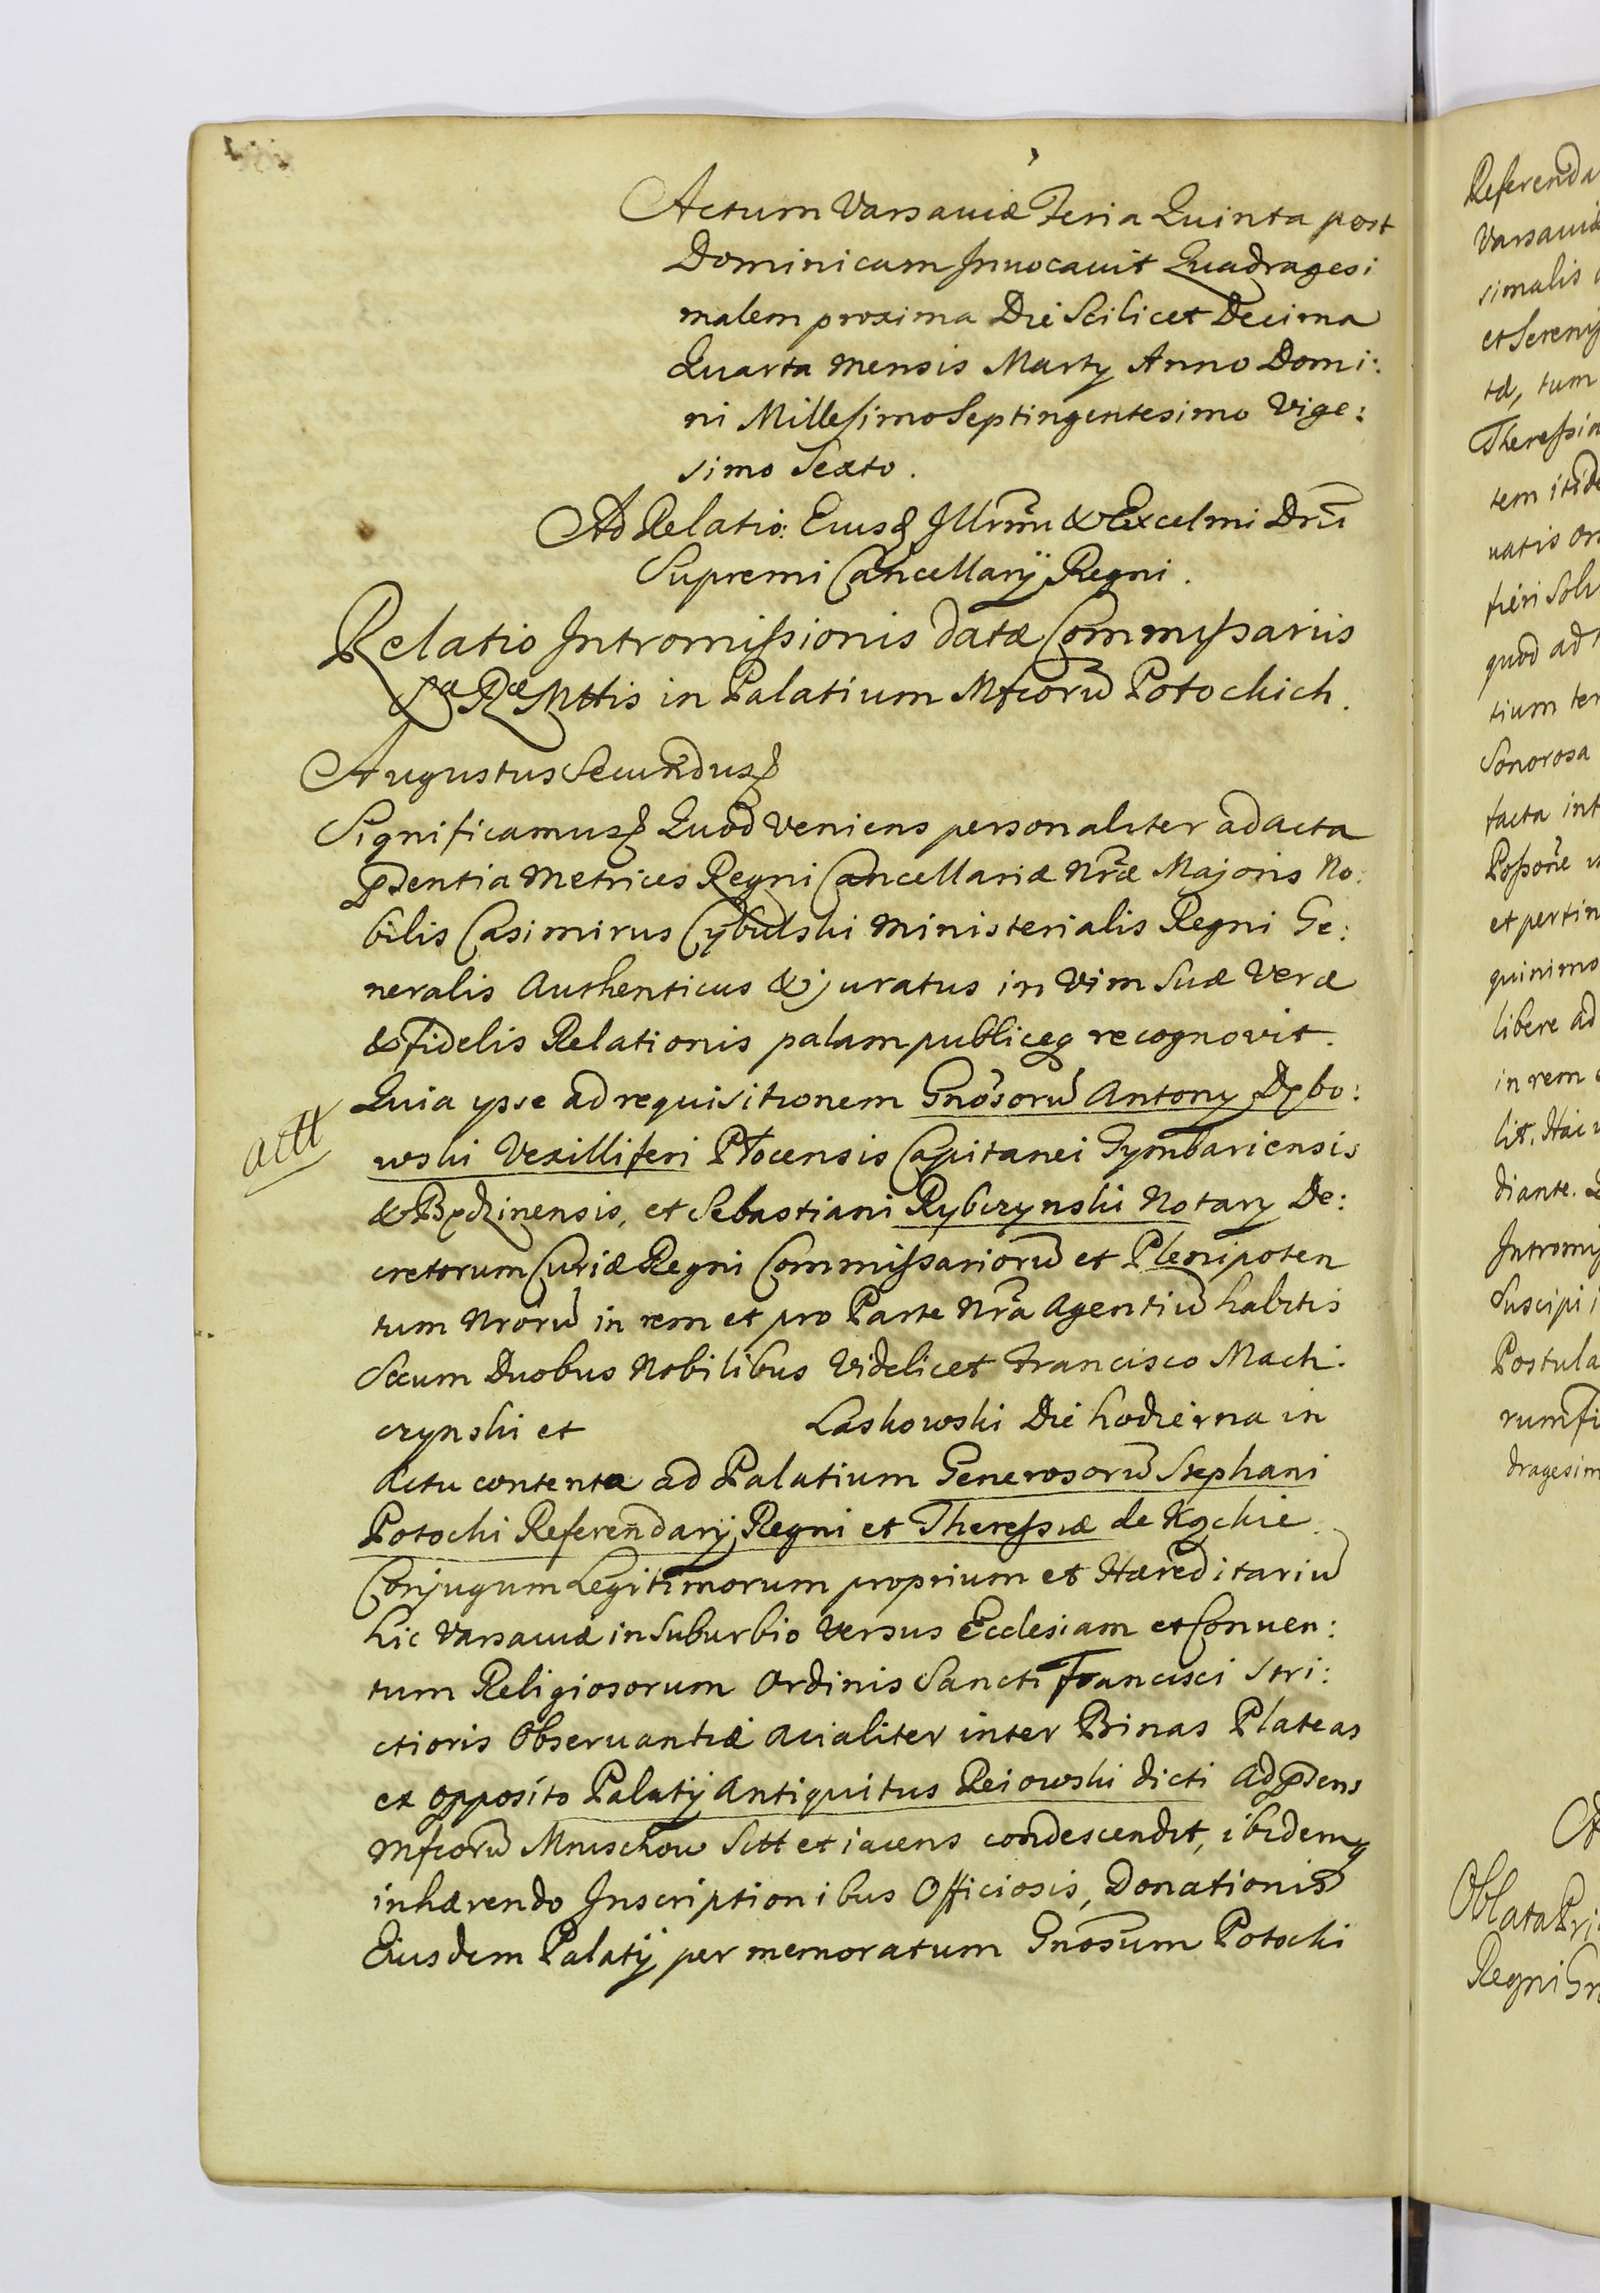 Actum Varsaviæ Feria Quinta post
Dominicam Invocavit Quadragesi
malem proxima Die Scilicet Decima
Quarta mensis Marty Anno Domi:
ni Millesimo Septingentesimo Vige:
simo Sexto.
Ad Relatio: Eiusd Illrmi & Excelmi Dni
Supremi Cancellarij Regni.
Relatio Intromissionis datæ Commissariis
Sæ Ræ Mttis in Palatium Mfcorū Potockich.
Augustus Secundus
Significamus Quod veniens personaliter ad acta
pdentia Metrices Regni Cancellariæ Nræ Majoris No:
bilis Casimirus Cybulski Ministerialis Regni Ge:
neralis Authenticus & juratus in Vim Suæ Veræ
& fidelis Relationis palam publiceq recognovit.
Quia ypse ad requisitionem Gnosorū Antony Dębo:
actt
wski Vexilliferi Płocensis Capitanei Tymbariensis
& Będzinensis, et Sebastiani Rybczynski Notary De:
cretorum Curiæ Regni Commissariorū et Plenipoten
tum Nrorū in rem et pro Parte Nra Agentiū habitis
Secum Duobus Nobilibus Videlicet Francisco Mach:
czynski et Laskowski Die hodierna in
Actu contenta ad Palatium Generosorū Stephani
Potocki Referendarij Regni et Theressiæ de Kąckie
Conjugum Legitimorum proprium et Hæreditariū
hic Varsaviæ in Suburbio Versus Ecclesiam et Conven:
tum Religiosorum Ordinis Sancti Francisci Stri:
ctioris Observantiæ acialiter inter Binas Plateas
ex opposito Palatij Antiquitus Reiowski dicti ad pdens
Mfcorū Mniszchow Sitt et iacens condescendit, ibidemq
inhærendo Inscriptionibus Officiosis, Donationis
Eiusdem Palatij per memoratum Gnosum Potocki
Referenda
Varsaviæ
simalis
et Sereniss
tæ, tum
Theressia
tem itide
vatis
fieri Solv
quod ad
tium
Sonorosa
facta int
Possone
et pertin
quinimo
libere ad
in rem
lit. Hac
diante.
Intromiss
Suscipi
Postula
rum fi
dragesim
Oblata Pri
Regni